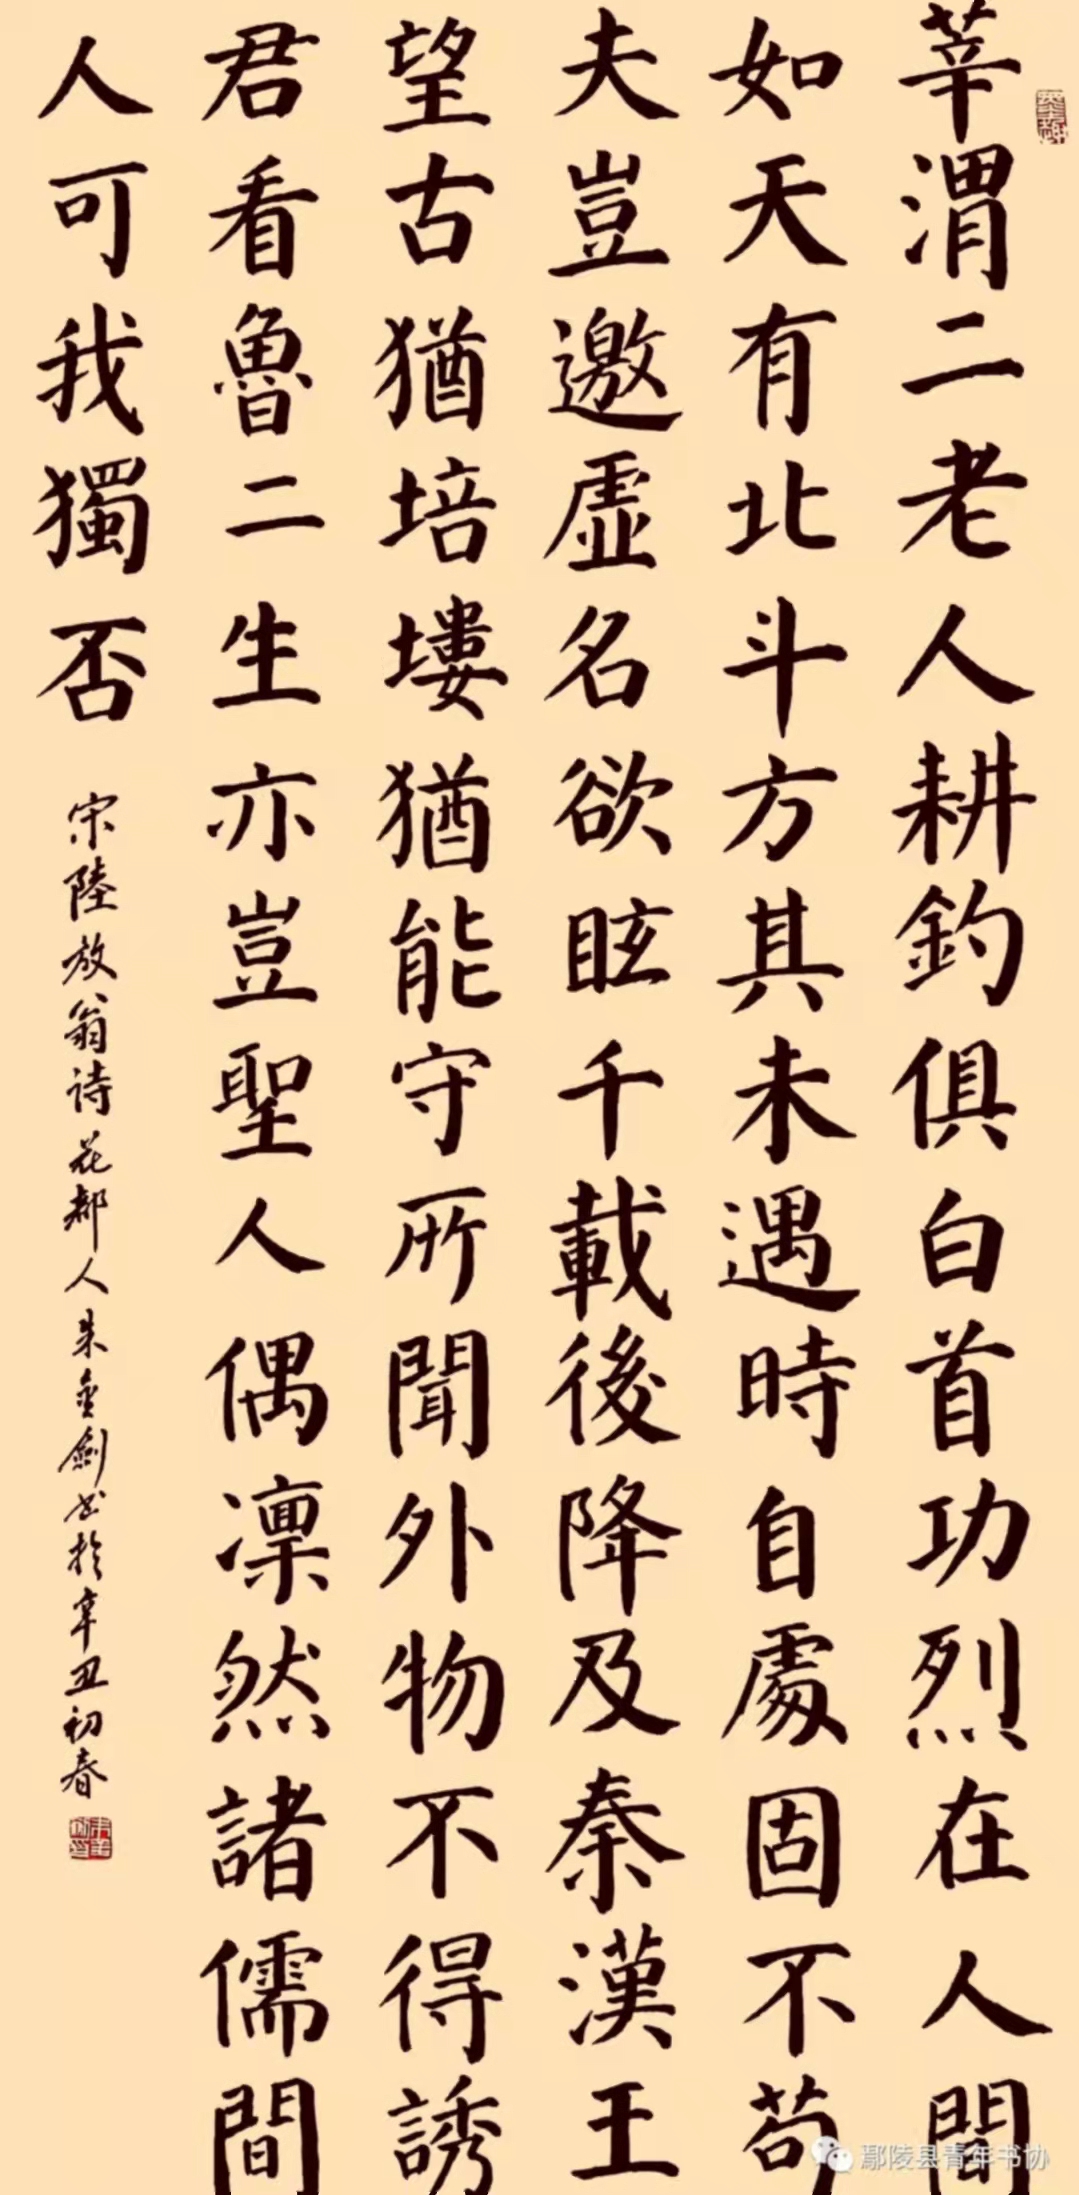 莘渭二老人耕釣俱白首功烈在人間
如天有北斗方其未遇時自處固不苟
夫豈邀虛名欲眩千載後降及秦漢王
望古猶培塿猶能守所聞外物不得誘
君看魯二生亦豈聖人偶凜然諸儒間
人可我獨否
宋陸放翁诗花都人朱金劍书於辛丑初春
鄢陵县青年书协